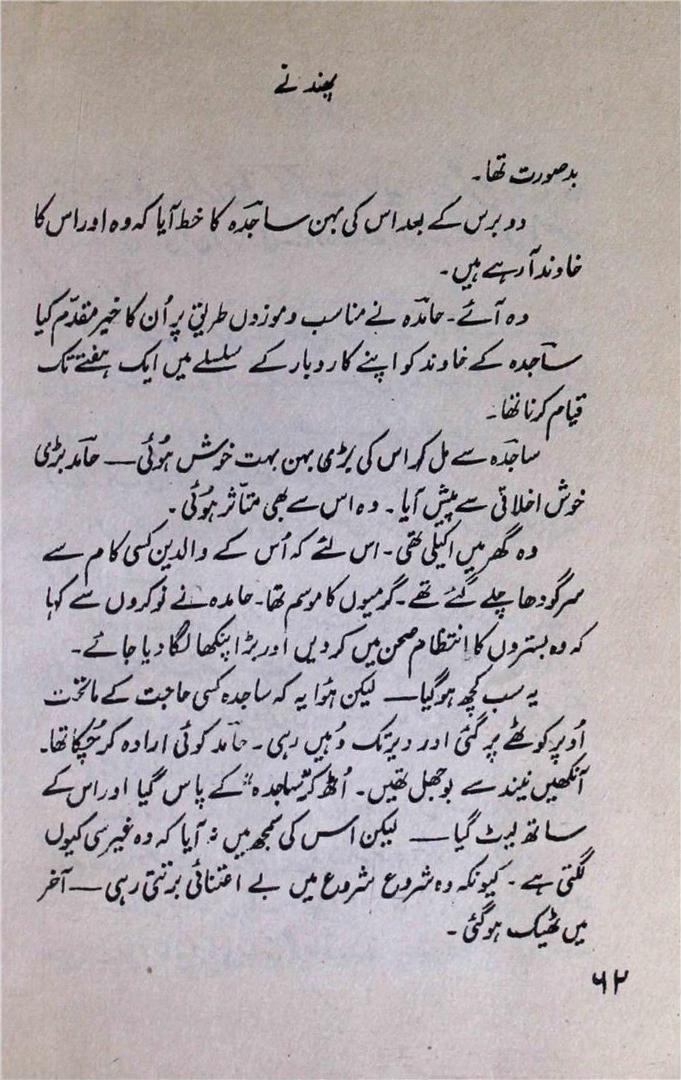 پھندنے
بدصورت تھا۔
دو برس کے بعد اس کی بہن ساجدہ کا خط آیا کہ وہ اور اس کا
خاوند آ رہے ہیں۔
وہ آئے۔ حامدہ نے مناسب و موزوں طریق پر اُن کا خیر مقدّم کیا
ساجدہ کے خاوند کو اپنے کاروبار کے سلسلے میں ایک ہفتے تک
قیام کرنا تھا۔
ساجدہ سے مل کر اس کی بڑی بہن بہت خوش ہُوئی — حامد بڑی
خوش اخلاقی سے پیش آیا۔ وہ اس سے بھی متاثر ہوئی۔
وہ گھر میں اکیلی تھی۔ اس لئے کہ اُس کے والدین کسی کام سے
سرگودھا چلے گئے تھے۔ گرمیوں کا موسم تھا۔ حامدہ نے نوکروں سے کہا
کہ وہ بستروں کا انتظام صحن میں کر دیں اور بڑا پنکھا لگا دیا جائے۔
یہ سب کچھ ہو گیا — لیکن ہُوا یہ کہ ساجدہ کسی حاجت کے ماتحت
اُوپر کوٹھے پر گئی اور دیر تک وہیں رہی۔ حامد کوئی ارادہ کر چُکا تھا۔
آنکھیں نیند سے بوجھل تھیں۔ اُٹھ کر "ساجدہ" کے پاس گیا اور اس کے
ساتھ لیٹ گیا — لیکن اس کی سمجھ میں نہ آیا کہ وہ غیر سی کیوں
لگتی ہے۔ کیونکہ وہ شروع شروع میں بے اعتنائی برتتی رہی — آخر
میں ٹھیک ہو گئی۔
۶۲